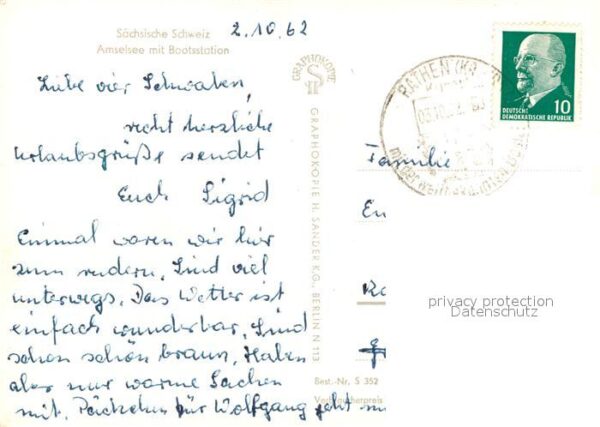 Sächsische Schweiz
Amselsee mit Bootsstation
2.10.62
Liebe vier Schwaben,
recht herzliche
Urlaubsgrüße sendet
Euch Sigrid
Einmal waren wir hier
zum rudern. Sind viel
unterwegs. Das Wetter ist
einfach wunderbar. Sind
schon schön braun. Haben
aber nur warme Sachen
mit. Päckchen für Wolfgang geht
GRAPHOKOPIE
GRAPHOKOPIE H. SANDER KG., BERLIN N 113
Best.-Nr. S 352
Verbraucherpreis
RATHEN
DEUTSCHE
DEMOKRATISCHE REPUBLIK
10
Familie
privacy protection
Datenschutz